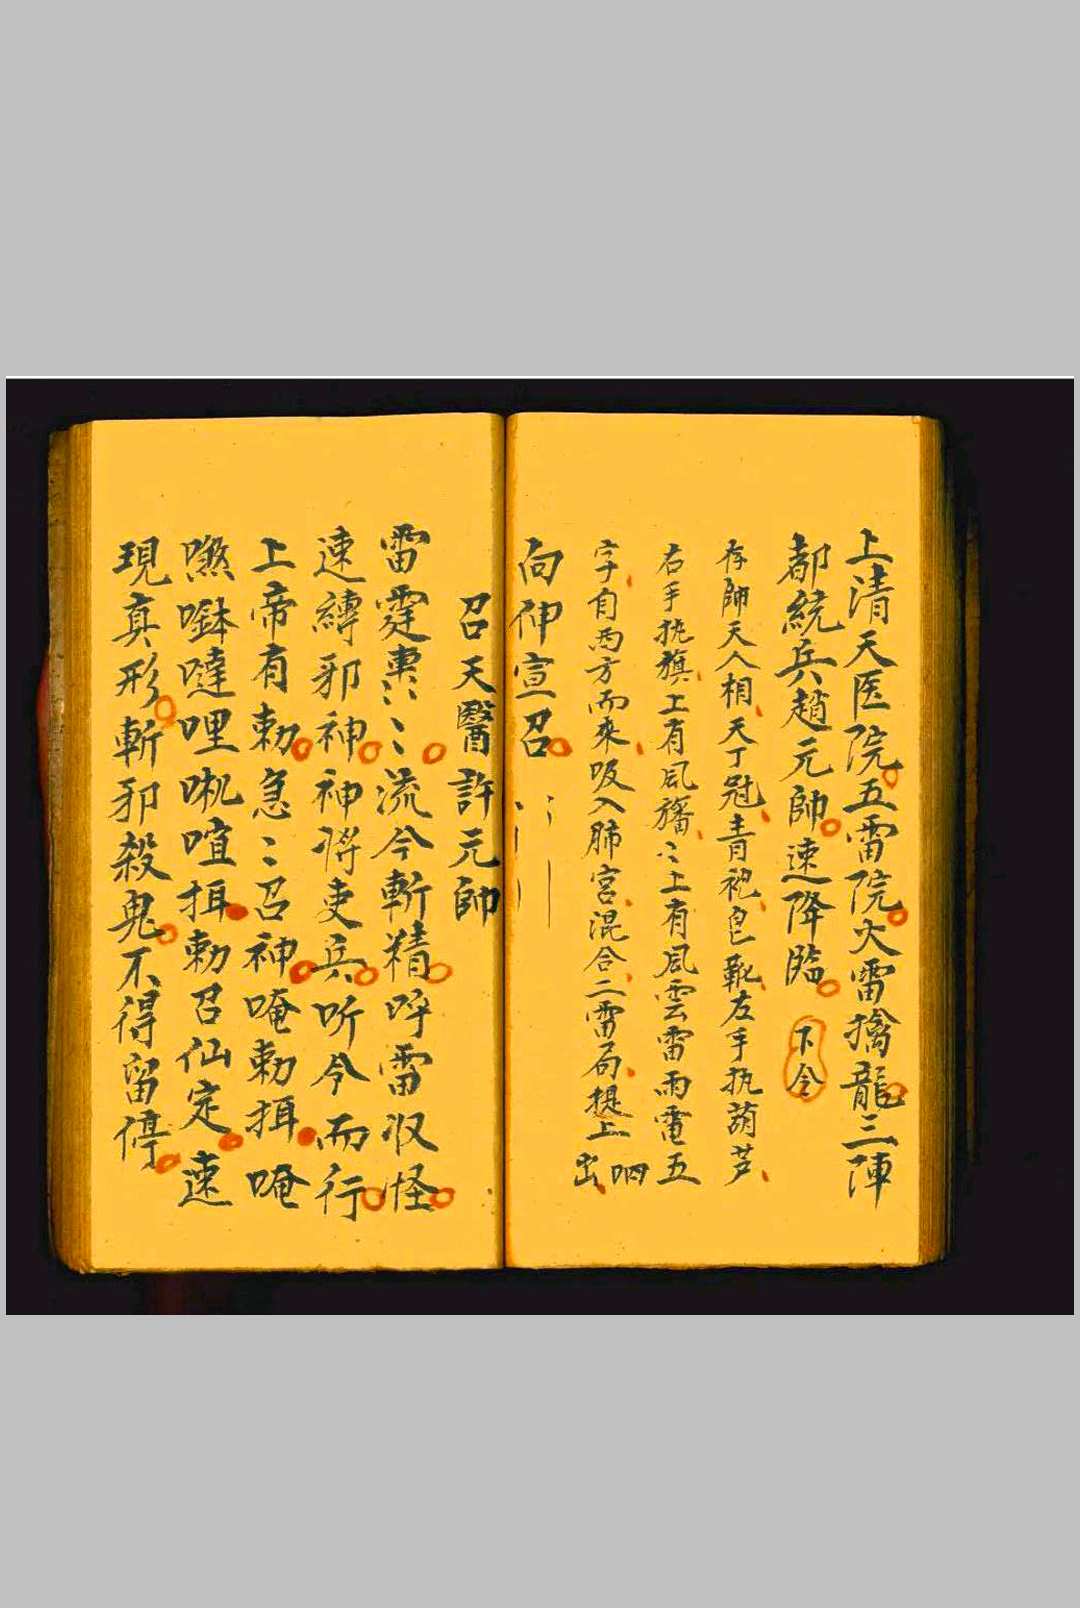 上清天医院五雷院火雷擒龍三陣
都統兵趙元帥速降臨 下令
存帥天人相天丁冠青袍皀靴左手执葫芦
右手执旗上有凨旛〻上有凨雲雷雨電五
字自西方而來吸入肺宮混合二雷局提上
呬出
向伸宣召
召天醫許元帥
雷霆轟〻流今斬精呼雷收怪
速縛邪神神将吏兵听令而行
上帝有勅急〻召神唵勅揖唵
嚈啴噠哩㗭喧揖勅召仙定速
現真形斬邪殺鬼不得留停